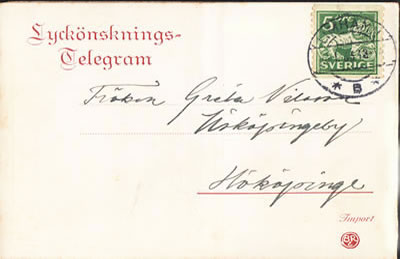 Lyckönsknings-
Telegram
5
SVERIGE
* B
Fröken Greta Nilsson
Hököpingeby
Hököpinge
Import